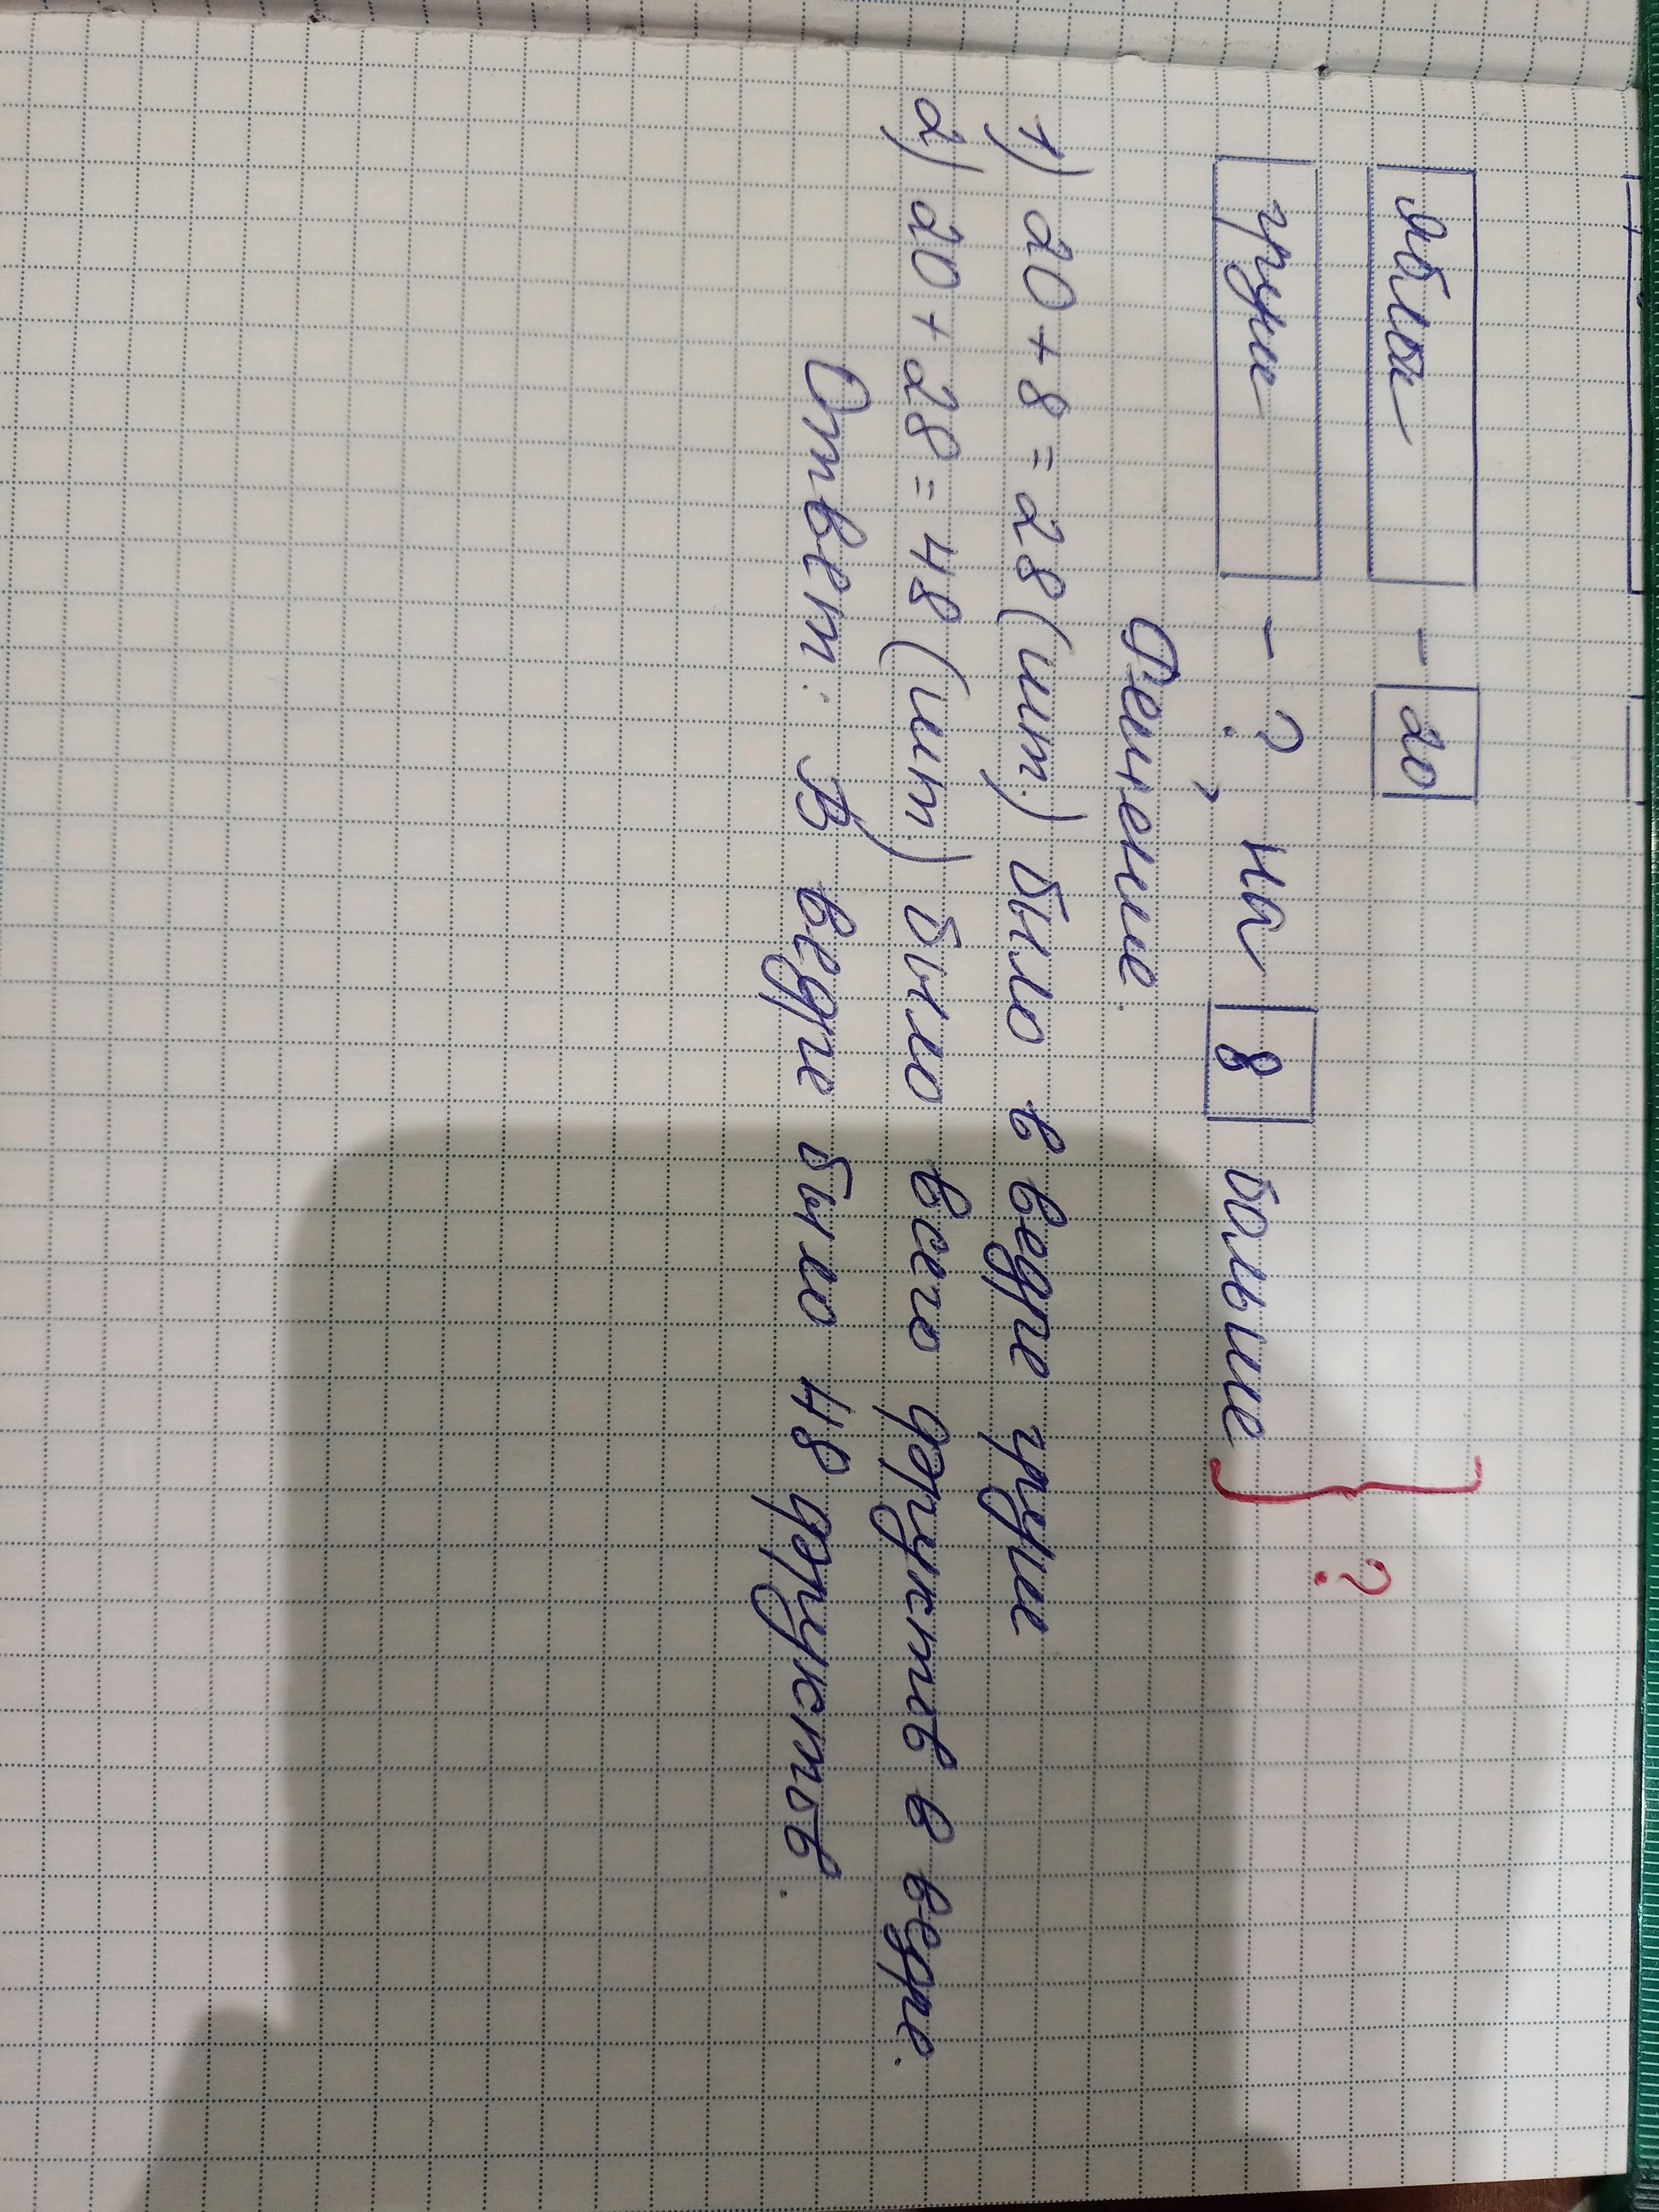 яблок - 20
груш - ?, на 8 больше } ?
Решение.
1) 20 + 8 = 28 (шт.) было в ведре груш
2) 20 + 28 = 48 (шт) было всего фруктов в ведре.
Ответ: В ведре было 48 фруктов.